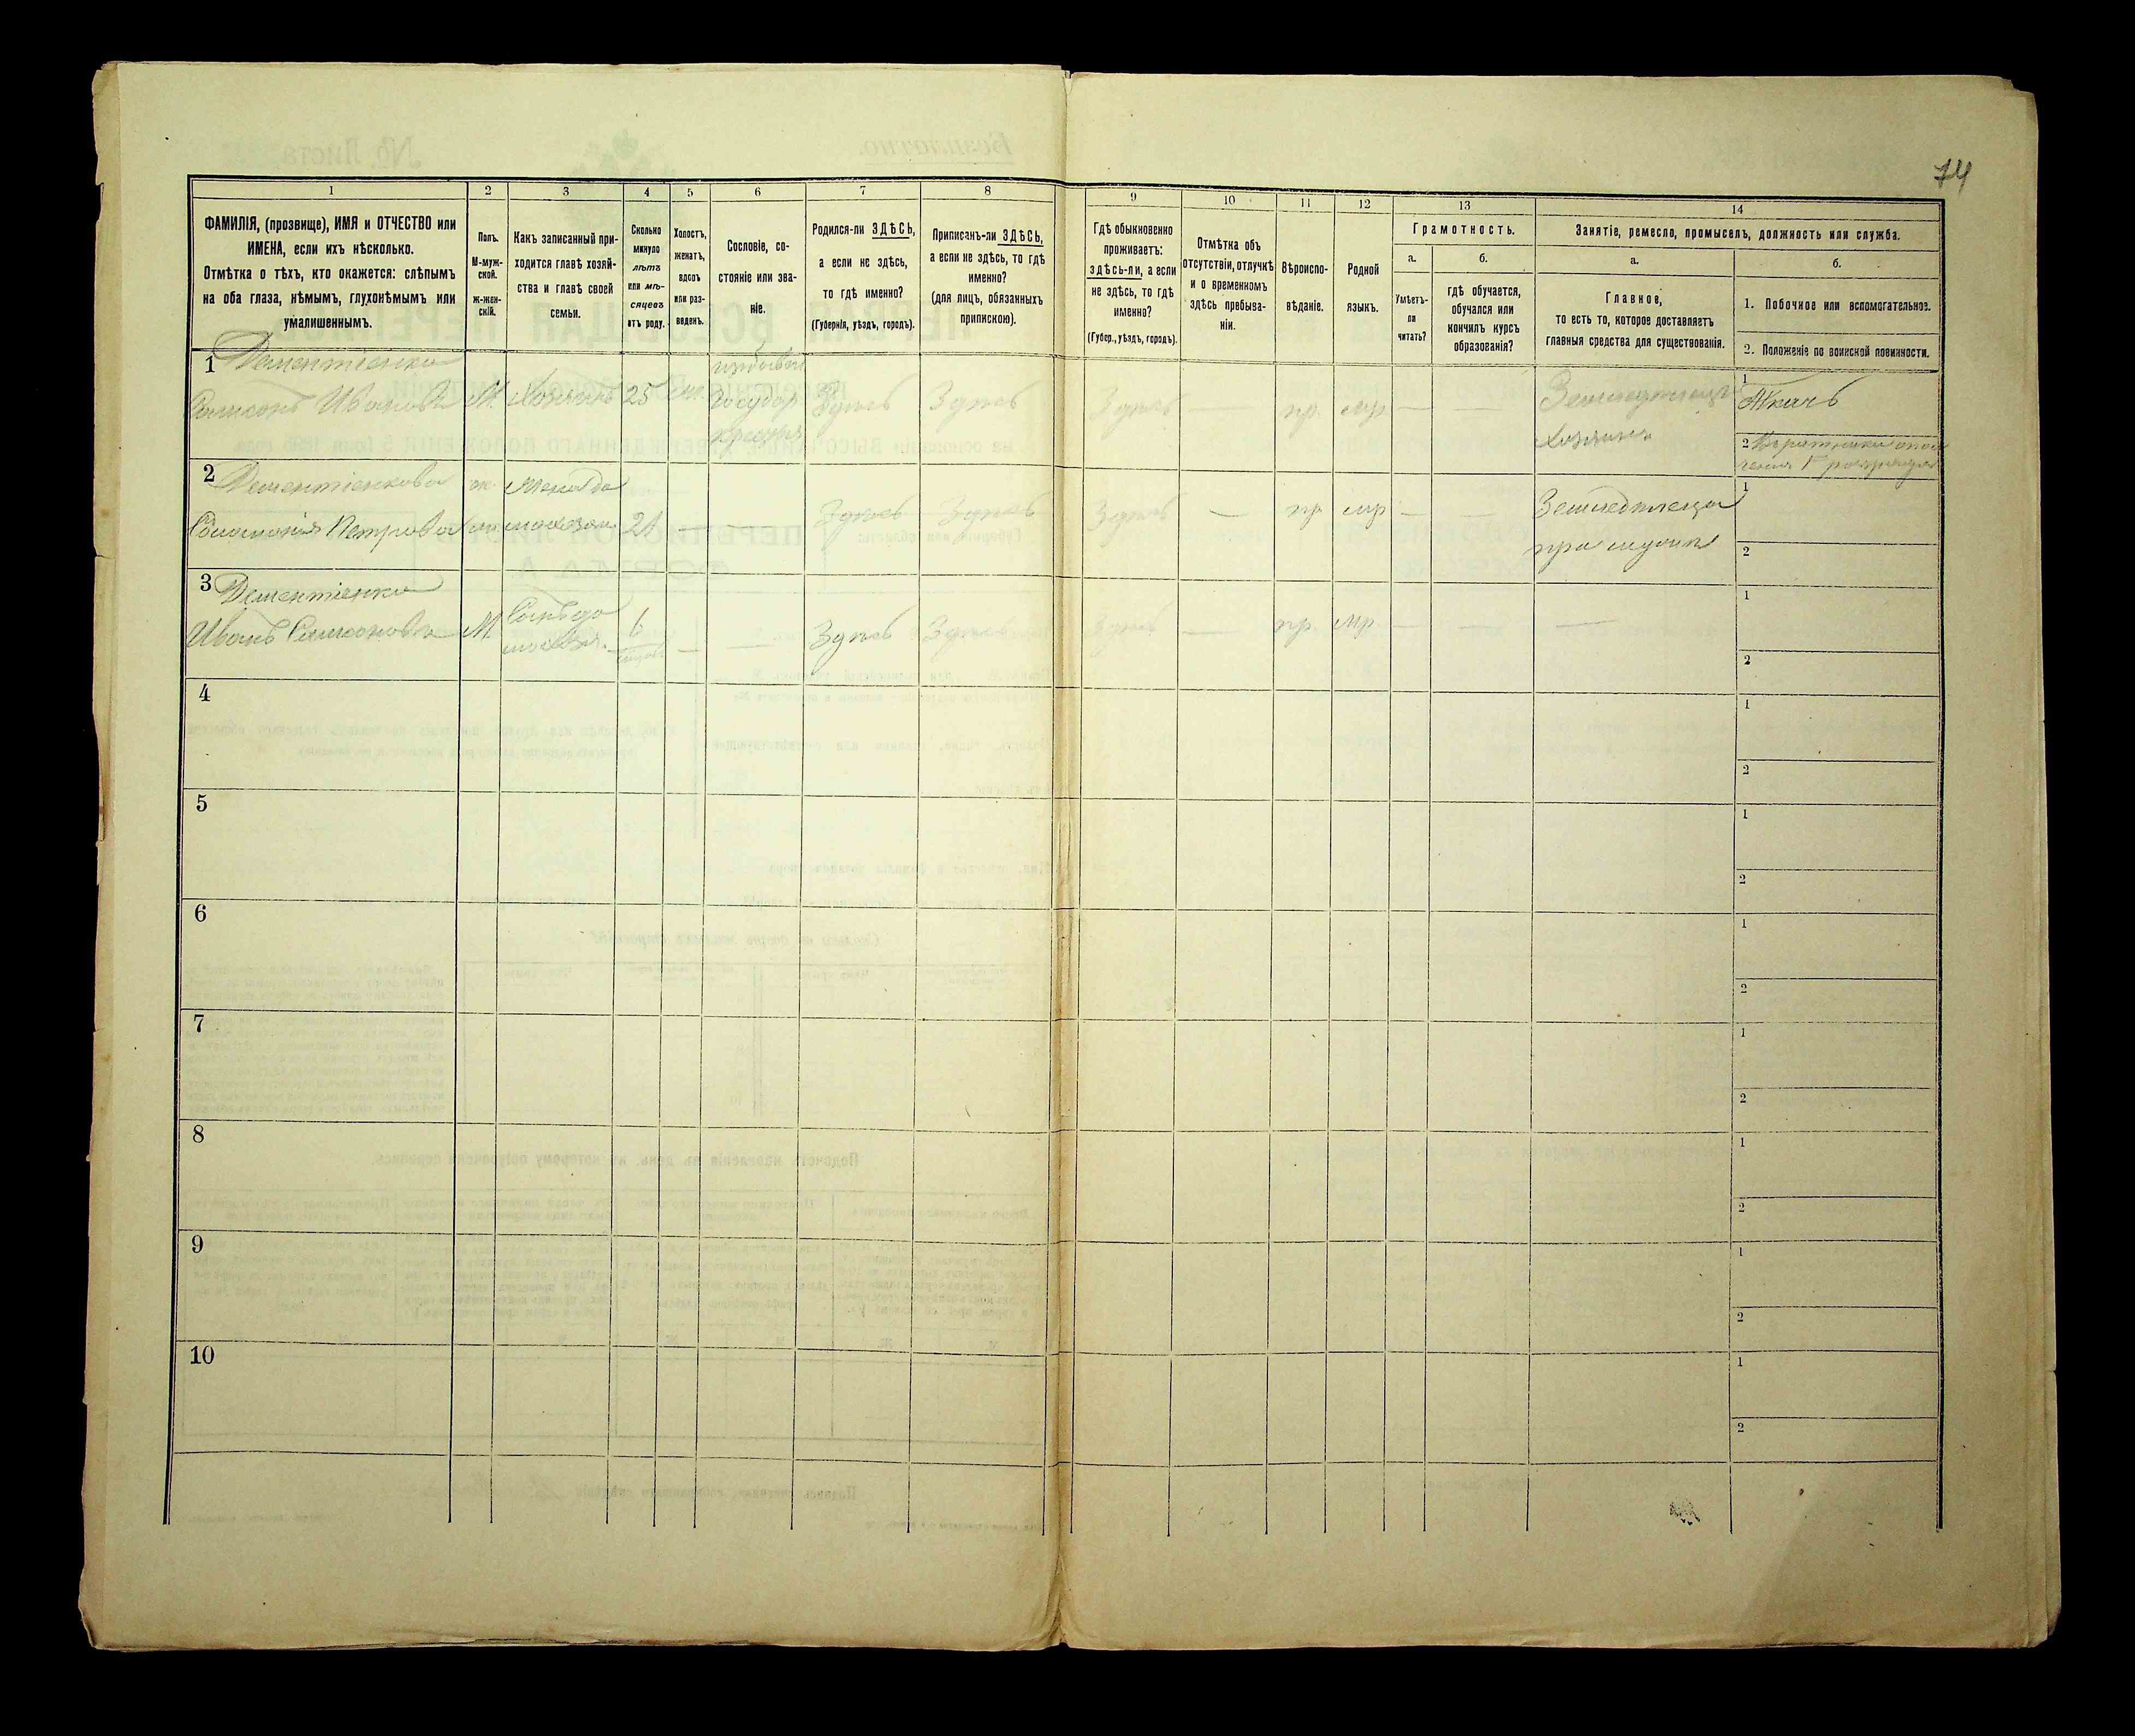 74
1
2
3
4
5
6
7
8
9
10
11
12
13
14
ФАМИЛІЯ, (прозвище), ИМЯ и ОТЧЕСТВО или
ИМЕНА, если ихъ нѣсколько.
Отмѣтка о тѣхъ, кто окажется: слѣпымъ
на оба глаза, нѣмымъ, глухонѣмымъ или
умалишеннымъ.
Полъ.
М-муж-
ской.
ж-жен-
скій.
Какъ записанный при-
ходится главѣ хозяй-
ства и главѣ своей
семьи.
Сколько
минуло
лѣтъ
или мѣ-
сяцевъ
отъ роду.
Холостъ,
женатъ,
вдовъ
или раз-
веденъ.
Сословіе, со-
стояніе или зва-
ніе.
Родился-ли ЗДѢСЬ,
а если не здѣсь,
то гдѣ именно?
(Губернія, уѣздъ, городъ).
Приписанъ-ли ЗДѢСЬ,
а если не здѣсь, то гдѣ
именно?
(для лицъ, обязанныхъ
припискою).
Гдѣ обыкновенно
проживаетъ:
здѣсь-ли, а если
не здѣсь, то гдѣ
именно?
(Губер., уѣздъ, городъ).
Отмѣтка объ
отсутствіи, отлучкѣ
и о временномъ
здѣсь пребыва-
ніи.
Вѣроиспо-
вѣданіе.
Родной
языкъ.
Грамотность.
а.
Умѣетъ-
ли
читать?
б.
гдѣ обучается,
обучался или
кончилъ курсъ
образованія?
Занятіе, ремесло, промыселъ, должность или служба.
а.
Главное,
то есть то, которое доставляетъ
главныя средства для существованія.
б.
1. Побочное или вспомогательное.
2. Положеніе по воинской повинности.
1 Дементіенко
Самсонъ Ивановъ М. Хозяинъ 25 Государ Здѣсь Здѣсь Здѣсь — пр. мр — Земледѣлецъ 1 Ткачъ
хозяинъ 2
2 Дементіенкова ж. Жена 1
Петрова 21 — — Здѣсь Здѣсь Здѣсь — пр мр — — Земледѣлецъ
при мужѣ 2
3 Дементіенко 1
Иванъ Самсоновъ М Сынъ 6 — — Здѣсь Здѣсь Здѣсь — пр. мр — — —
2
4 1
2
5 1
2
6 1
2
7 1
2
8 1
2
9 1
2
10 1
2